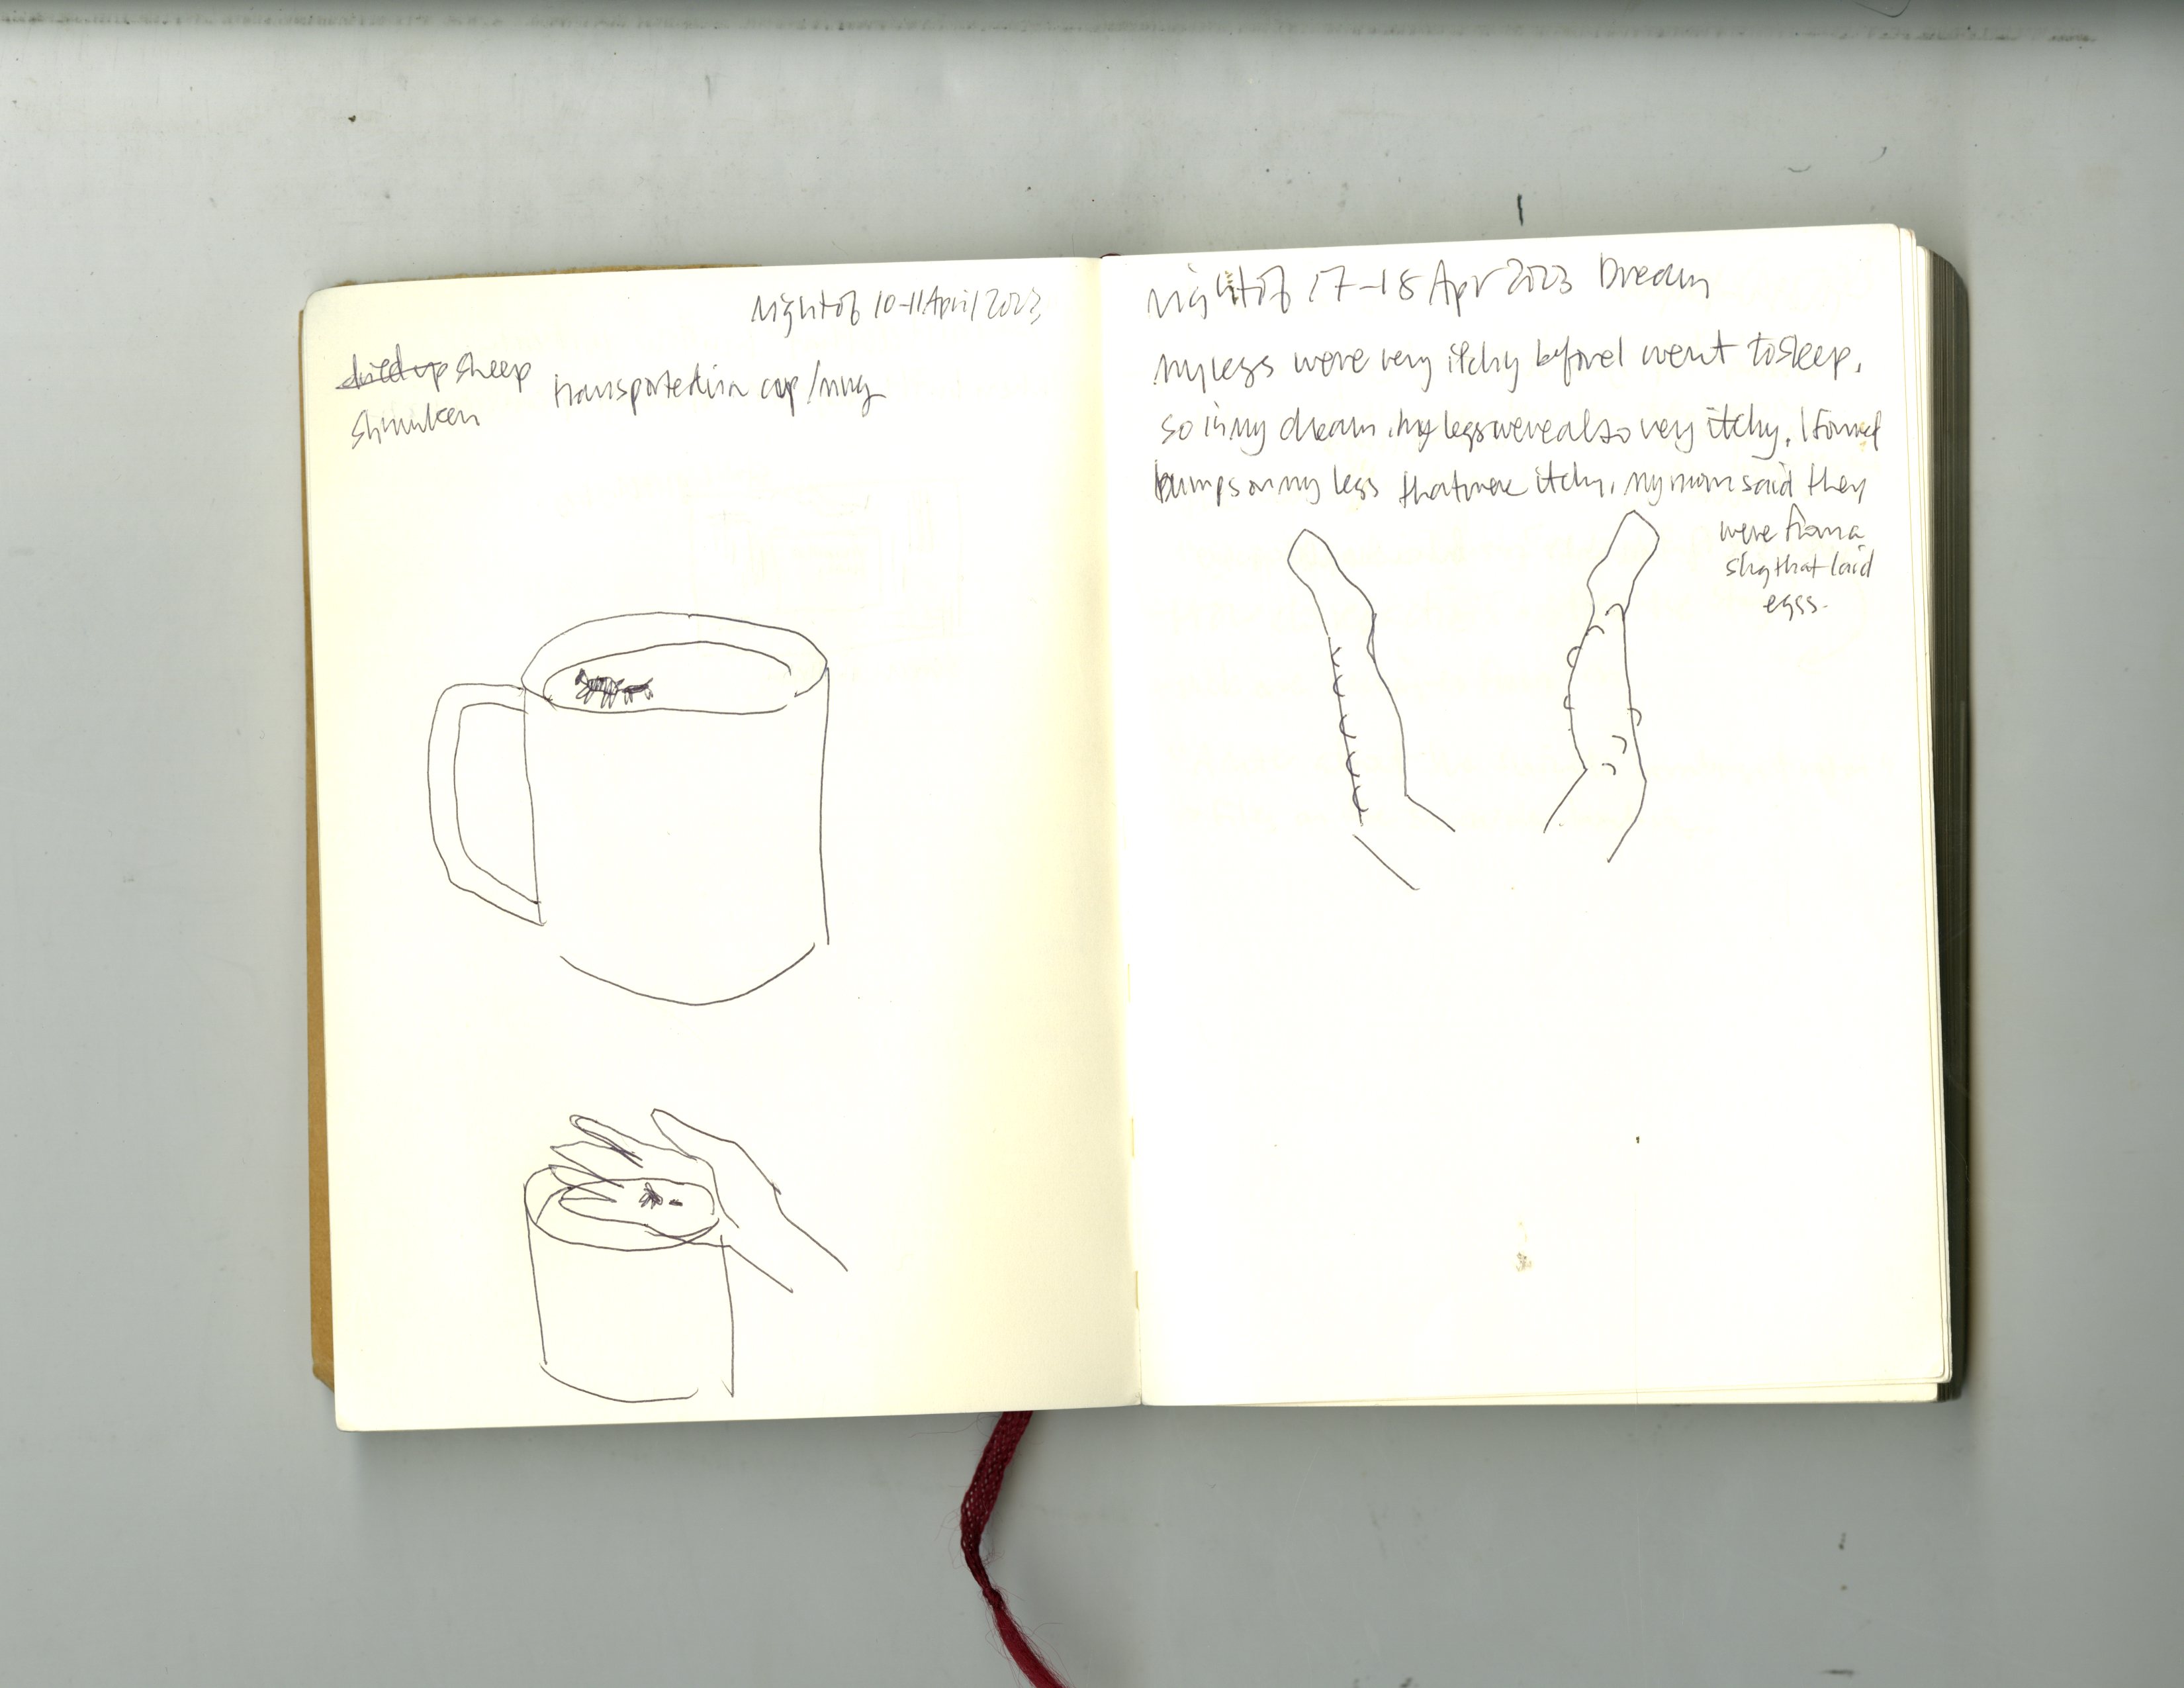 Night of 10-11 April 2023
dried up sheep transported in a cup/mug
shrunken
Night of 17-18 Apr 2023 Dream
my legs were very itchy before I went to sleep,
so in my dream, my legs were also very itchy, I found
bumps on my legs that were itchy, my mom said they
were from a
slug that laid
eggs.